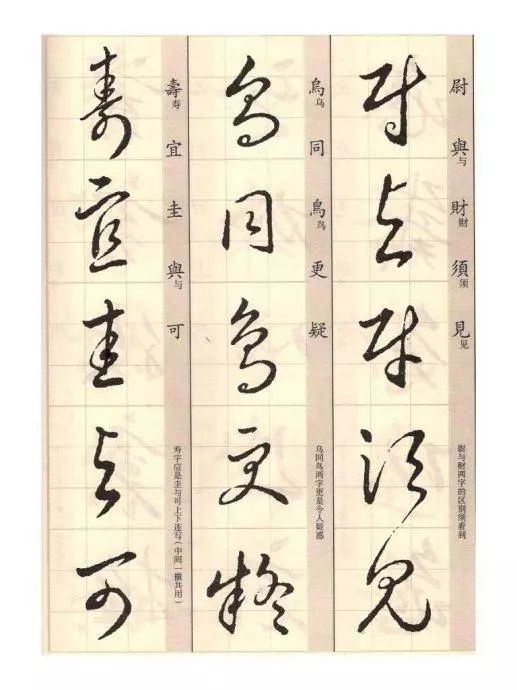 尉與财須見
尉與与財财須须見见
尉与财两字的区别须看到
烏同鳥更疑
烏乌同鳥鸟更疑
乌同鸟两字更是令人疑惑
壽宜圭與可
壽寿宜圭與与可
寿字应是圭与可上下连写(中间一横共用)